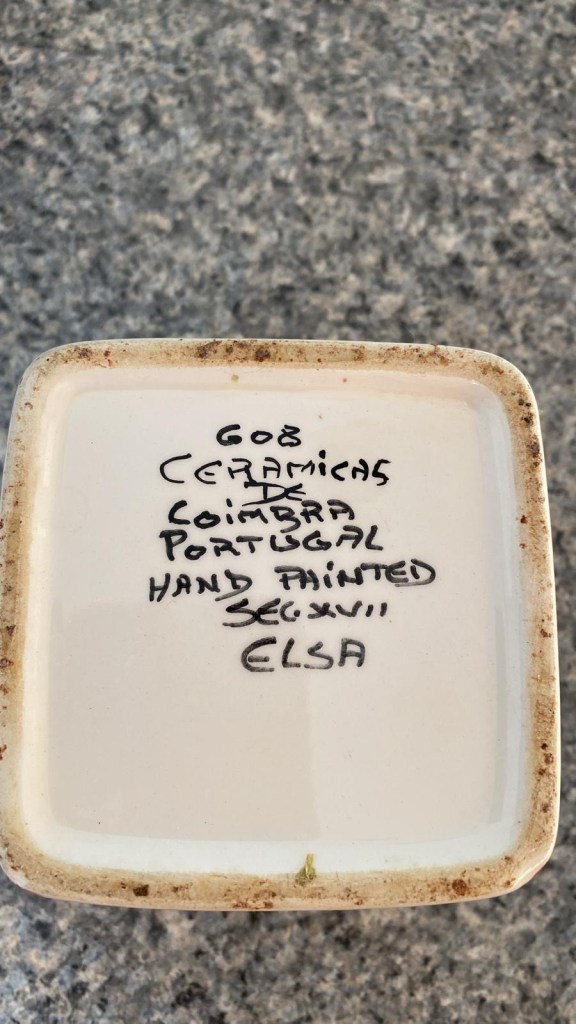 608
CERAMICAS
DE
COIMBRA
PORTUGAL
HAND PAINTED
SEC XVII
ELSA